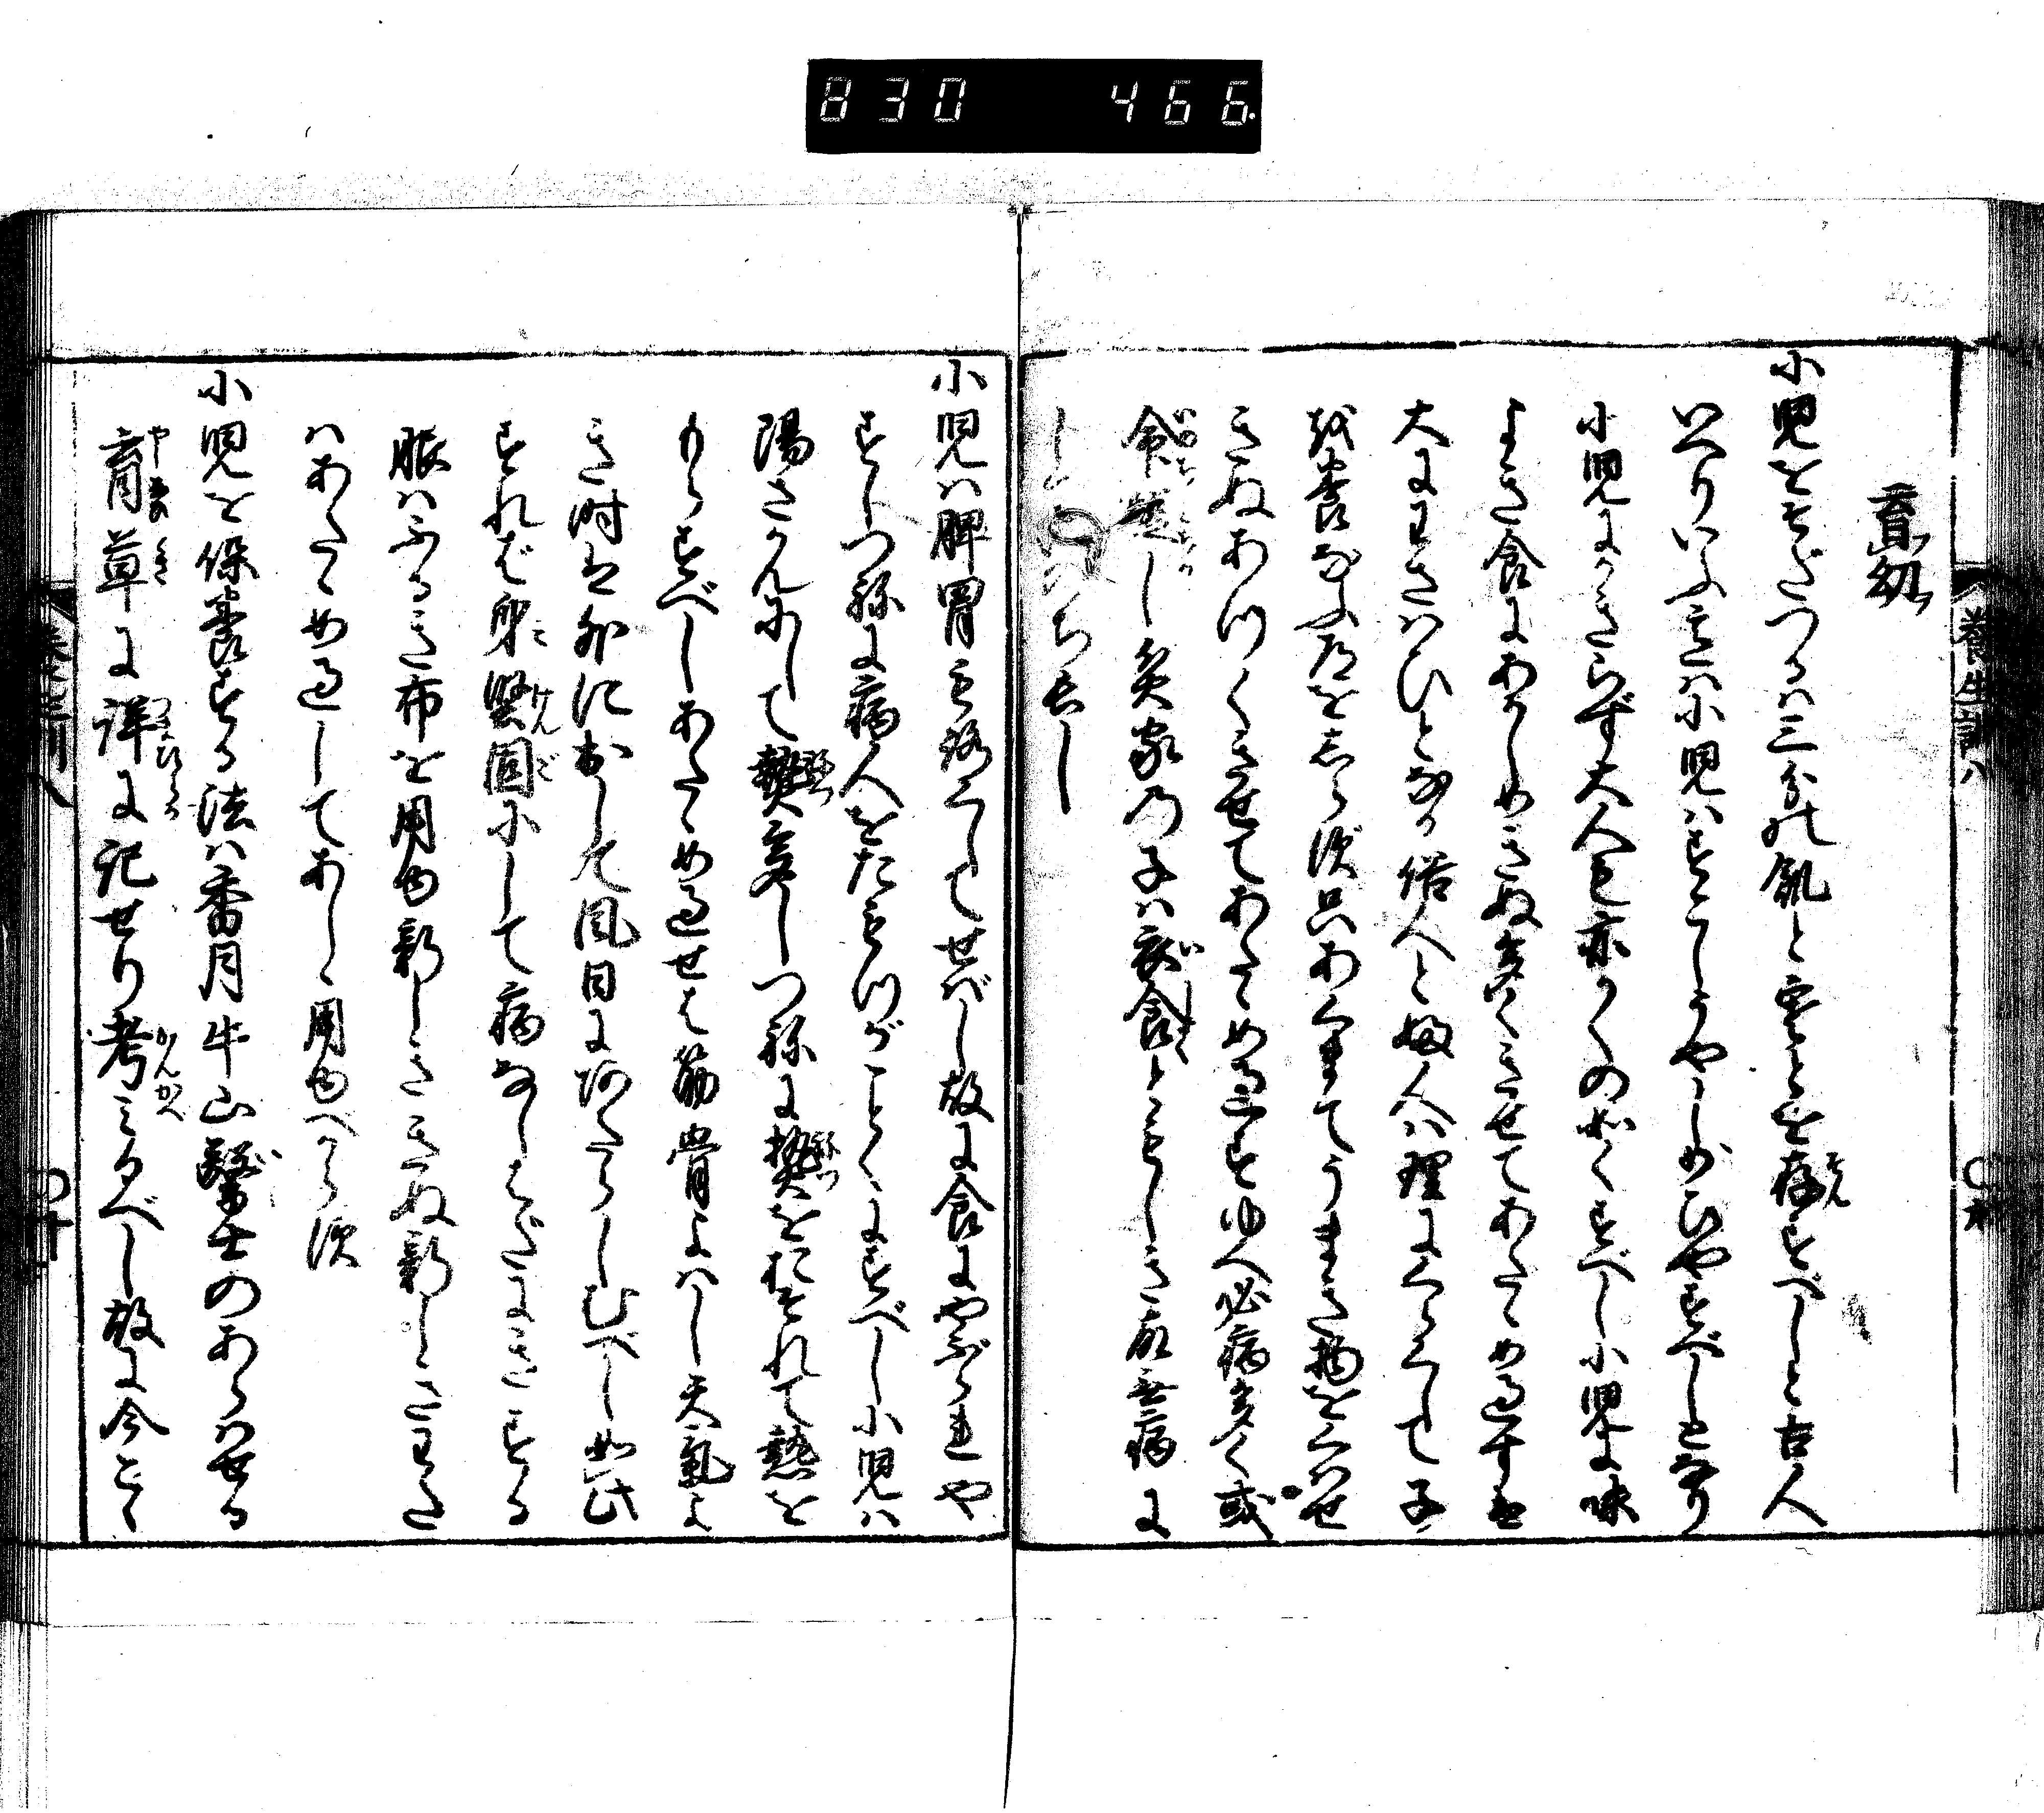 830 466
育幼
小児をそだつるは三分の飢と寒とを存すべしと古人
いへりいふ意は小児はすこしうやし少ひやすべしとなり
小児にかぎらず大人も亦かくの如くすべし小児に味
よき食にあかしめきぬ多くきせてあたゝめ過すは
大にわざはひとなる俗人と婦人は理にくらくして子
を養ふ道をしらず只あくまてうまき物をくはせ
きぬあつくきせてあたゝめ過すゆへ必病多く或
命短し貧家の子は衣食ともしき故無病に
していのち長し
小児は脾胃もろくしてせばし故に食にやぶられや
すしつねに病人をたもつがごとくにすべし小児は
陽さかんにして熱多しつねに熱をおそれて熱を
もらすべしあたゝめ過せば筋骨よはし天気よ
き時は外に出して風日にあたらしむべし如此
すれば身堅固にして病なしはだにきする
服はふるき布を用ゆ新しききぬ新しきわた
はあたゝめ過してあしゝ用ゆべからず
小児を保養する法は香月牛山医士のあらはせる
育草に詳に記せり考みるべし故に今こゝ
養生訓 八